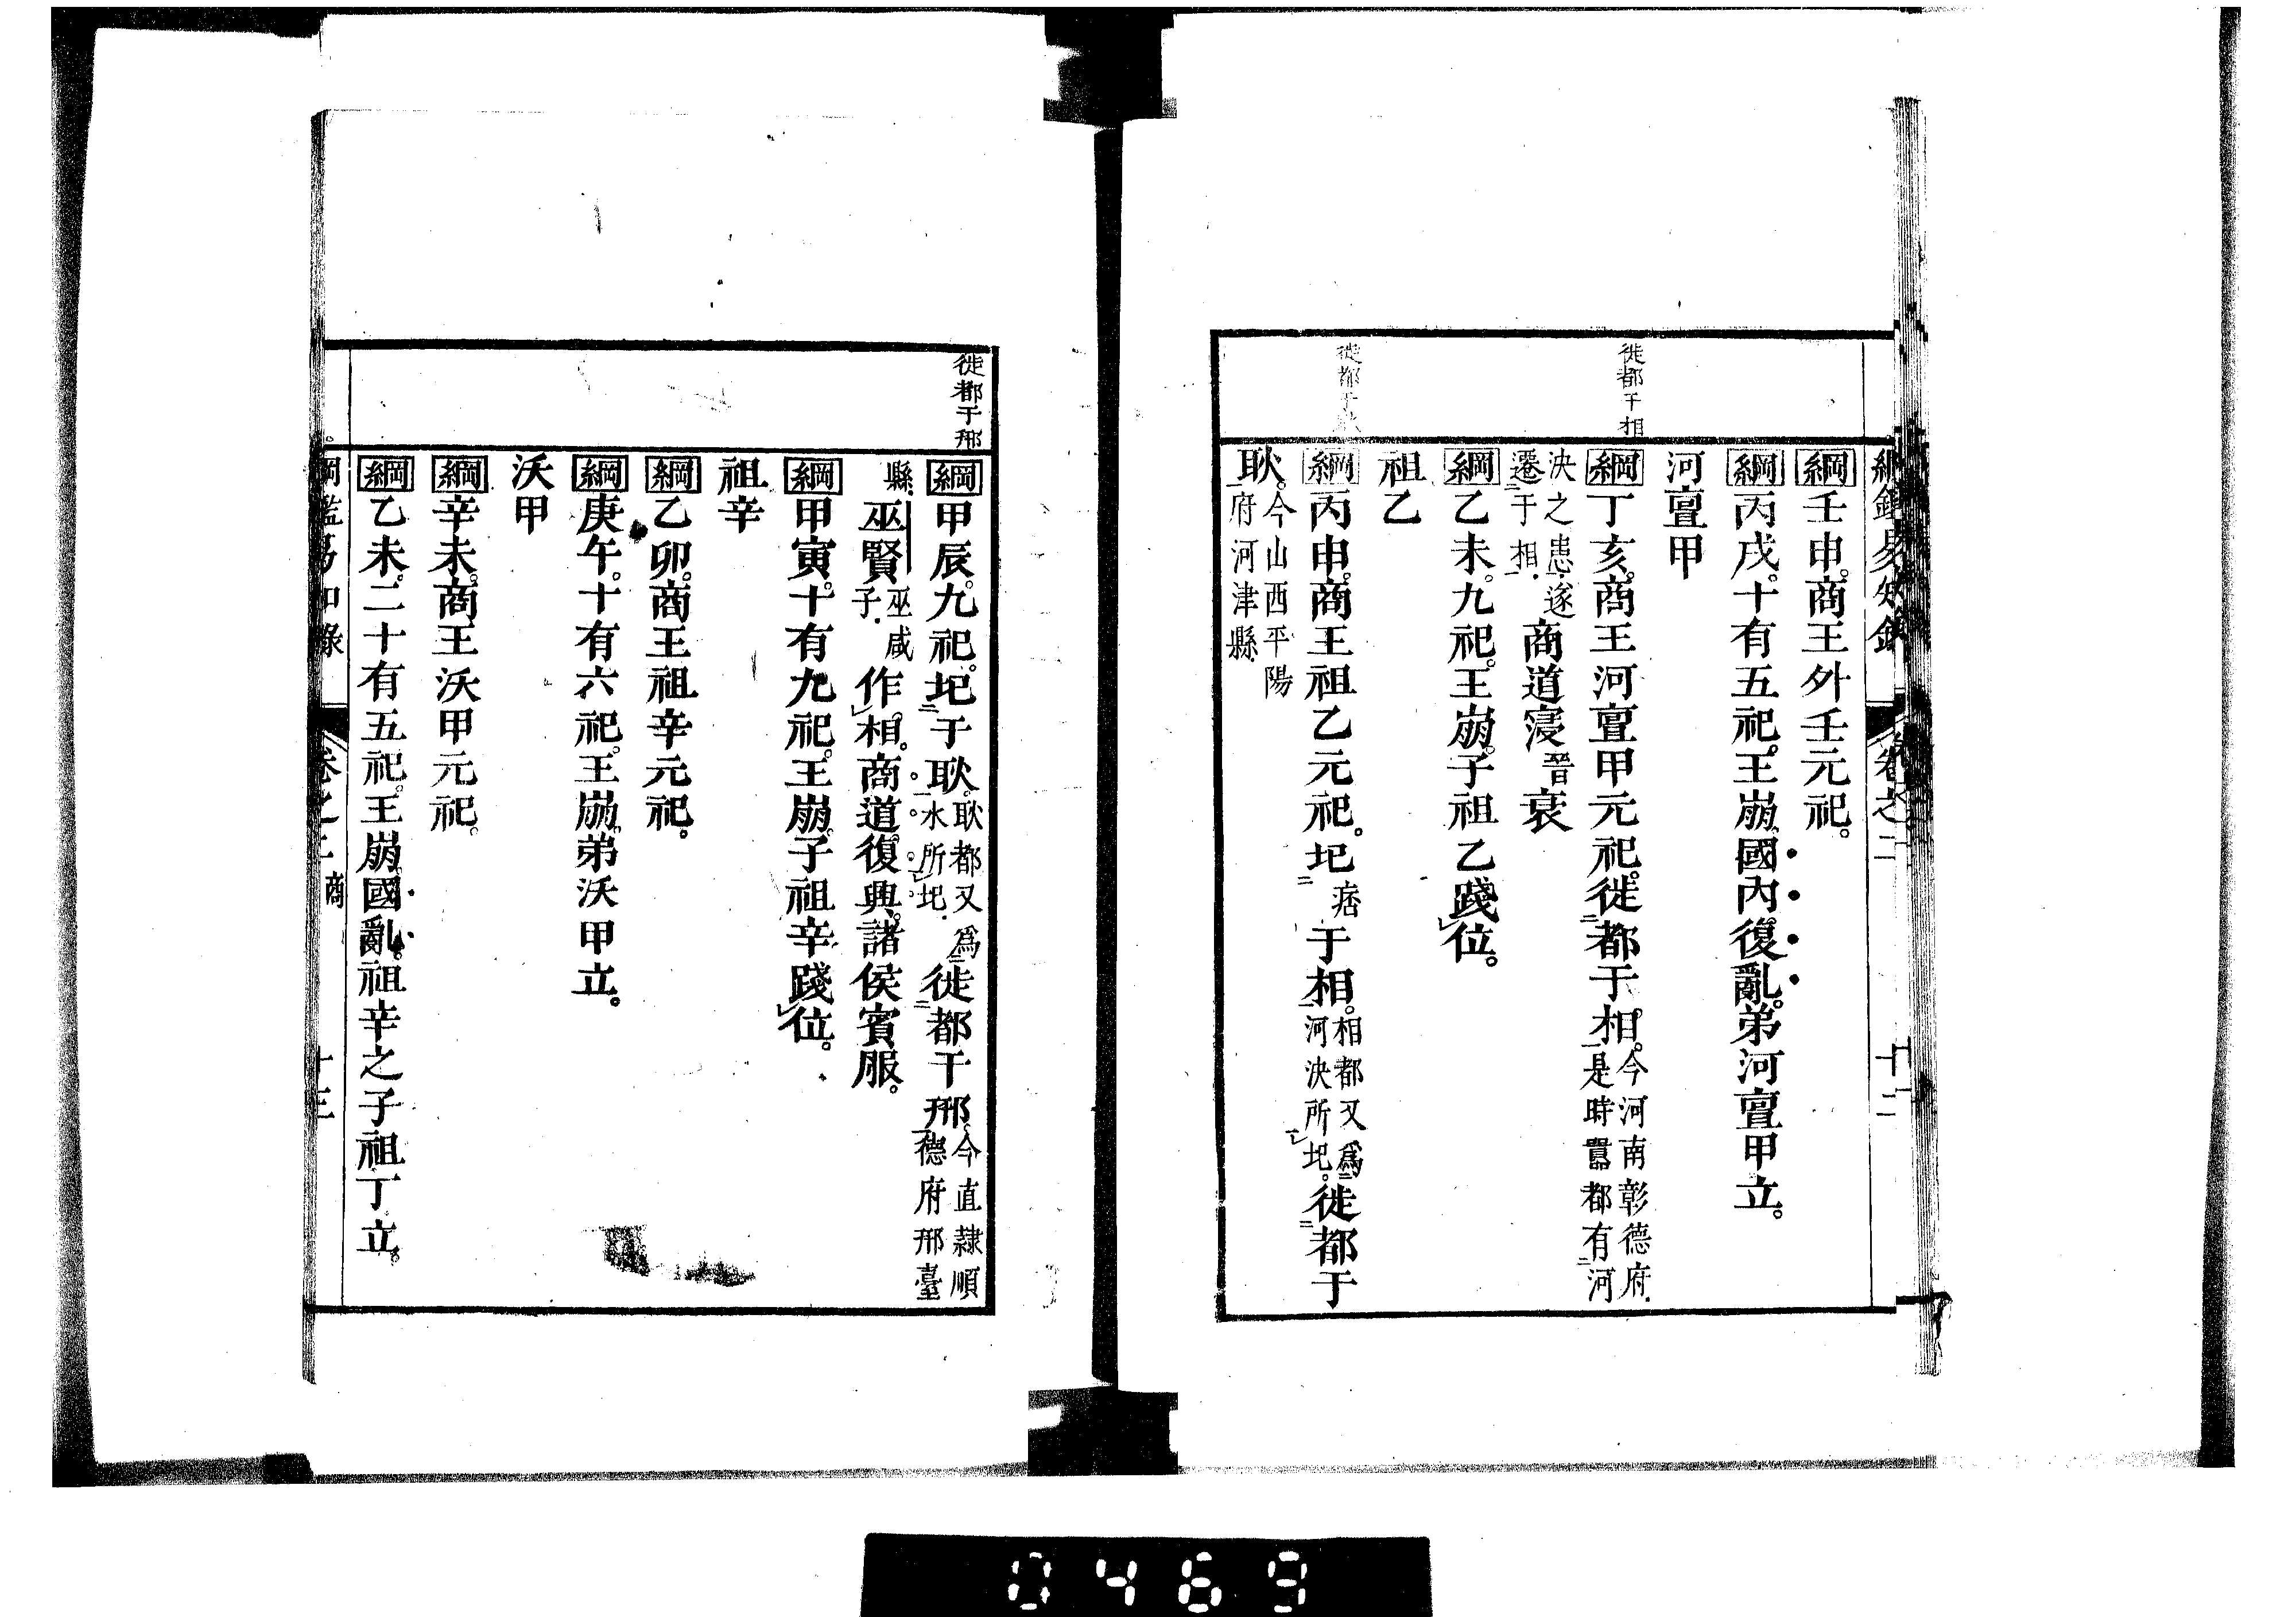 綱鑑易知錄　卷之二　十二
徙都于相
綱壬申。商王外壬元祀。
綱丙戌。十有五祀。王崩。國內復亂。弟河亶甲立。
河亶甲
綱丁亥。商王河亶甲元祀。徙都于相。今河南彰德府.是時囂都有河
決之患.遂遷于相.商道寖晉衰
綱乙未。九祀。王崩。子祖乙踐位。
祖乙
徙都于耿
綱丙申。商王祖乙元祀。圮痞于相。相都又爲河決所圮。徙都于
耿。今山西平陽府河津縣.
徙都于邢
綱甲辰。九祀。圮于耿。耿都又爲水所圮.徙都于邢。今直隷順德府邢臺
縣.巫賢巫咸子.作相。商道復興。諸侯賓服。
綱甲寅。十有九祀。王崩。子祖辛踐位。
祖辛
綱乙卯。商王祖辛元祀。
綱庚午。十有六祀。王崩。弟沃甲立。
沃甲
綱辛未。商王沃甲元祀。
綱乙未。二十有五祀。王崩。國亂。祖辛之子祖丁立。
綱鑑易知錄　卷之二　商　十三
0469